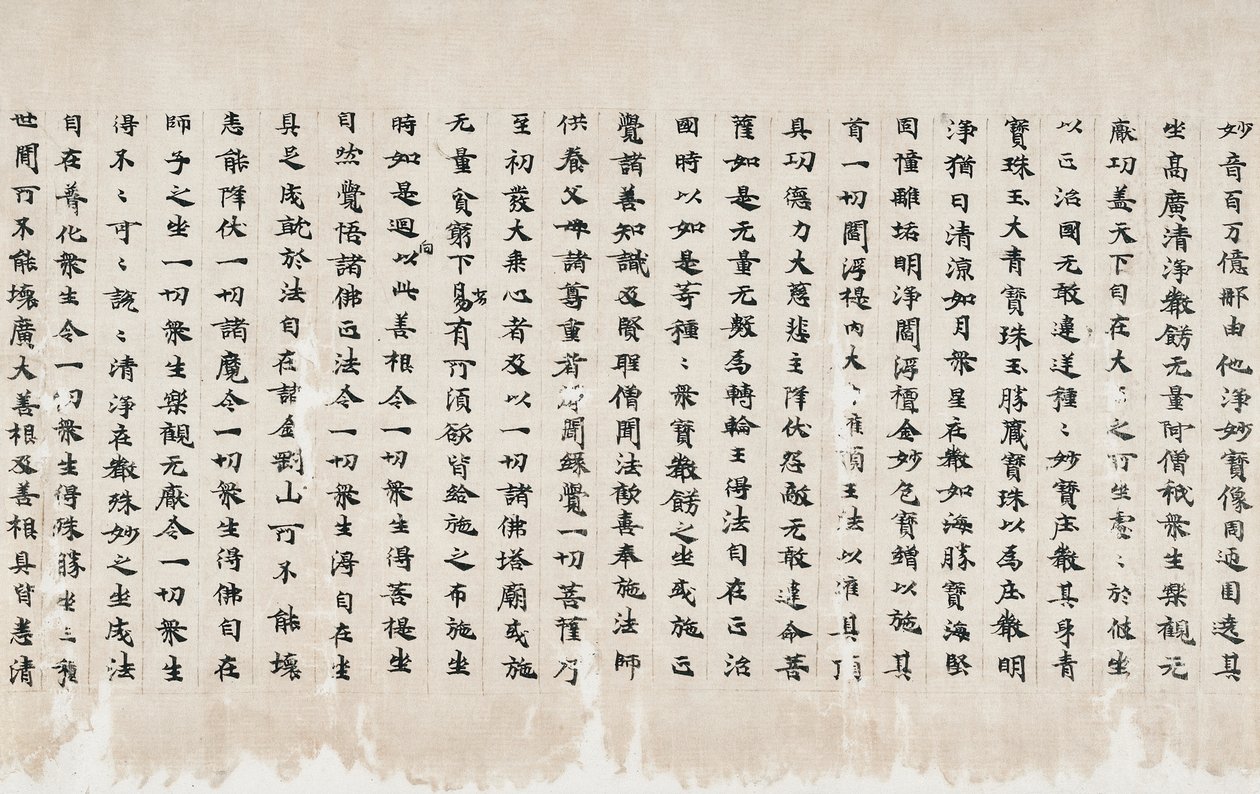 妙音百百万億那由他淨妙寶像周迊圍遶其
坐髙廣清淨嚴餝无量阿僧秖衆生樂觀无
厭功盖天下自在大之所坐處〻於彼坐
以正治國无敢違逆種〻妙寶庄嚴其身青
寶珠玉大青寶珠玉勝蔵寶珠以為庄嚴明
淨猶日清涼如月衆星在嚴如海勝寶海堅
固憧離垢明淨閻浮檀金妙色寶繒以施其
首一切閻浮提内大灌頂王法以灌其頂
具功德力大慈悲主降伏怨敵无敢違命菩
薩如是无量无數為轉輪王得法自在正治
國時以如是等種〻衆寶嚴餝之坐或施正
覺諸善知識及賢聖僧聞法歡喜奉施法師
供養父母諸尊重者聲聞緣覺一切菩薩乃
至初發大乘心者及以一切諸佛塔廟或施
无量貧窮下易有所須欲皆給施之布施坐
時如是迴向以此善根令一切衆生得菩提坐
自然覺悟諸佛正法令一切衆生得自在坐
具足成就於法自在諸金剛山所不能壞
悉能降伏一切諸魔令一切衆生得佛自在
師子之坐一切衆生樂觀无厭令一切衆生
得不〻可〻說〻清淨在嚴殊妙之坐成法
自在普化衆生令一切衆生得殊勝坐三種
世間所不能壞廣大善根及善根具皆悉清